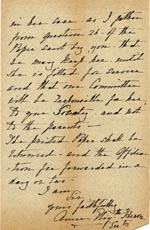 in her case as I gather
from question 26 of the
Paper sent by you that
he may keep her until
she is fitted for service
and that our Committee
will be responsible for her,
to your Society and not
to the parents.
The printed Paper shall be
returned and the Affidavit
form fee forwarded in a
day or two.
I am
Sir
Yours faithfully